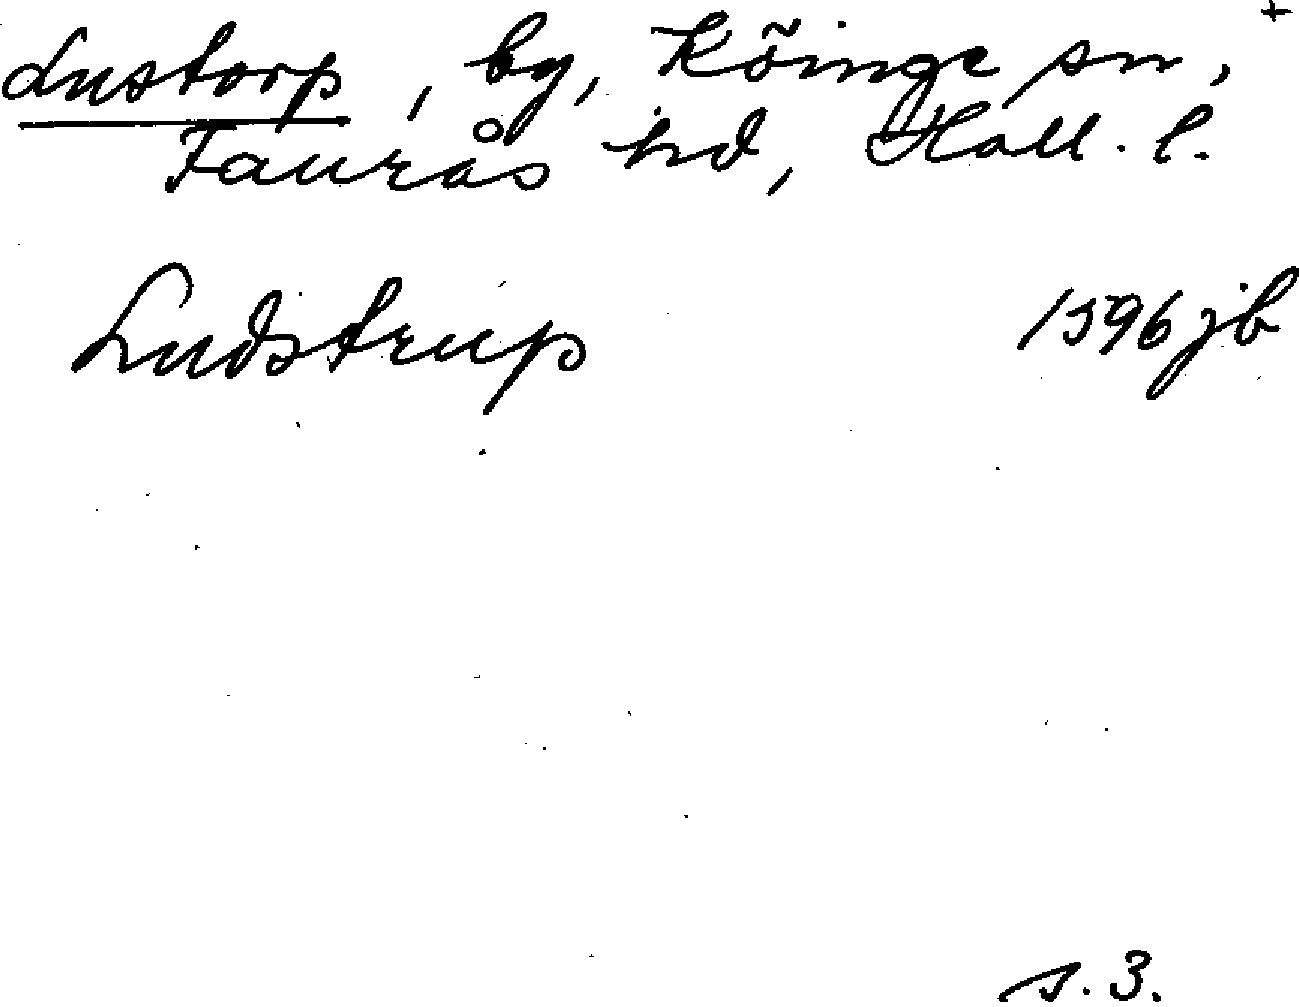 Lustorp, by, Köinge sn, +
Faurås hd, Hall. l.
Ludstrup 1596 jb
s. 3.